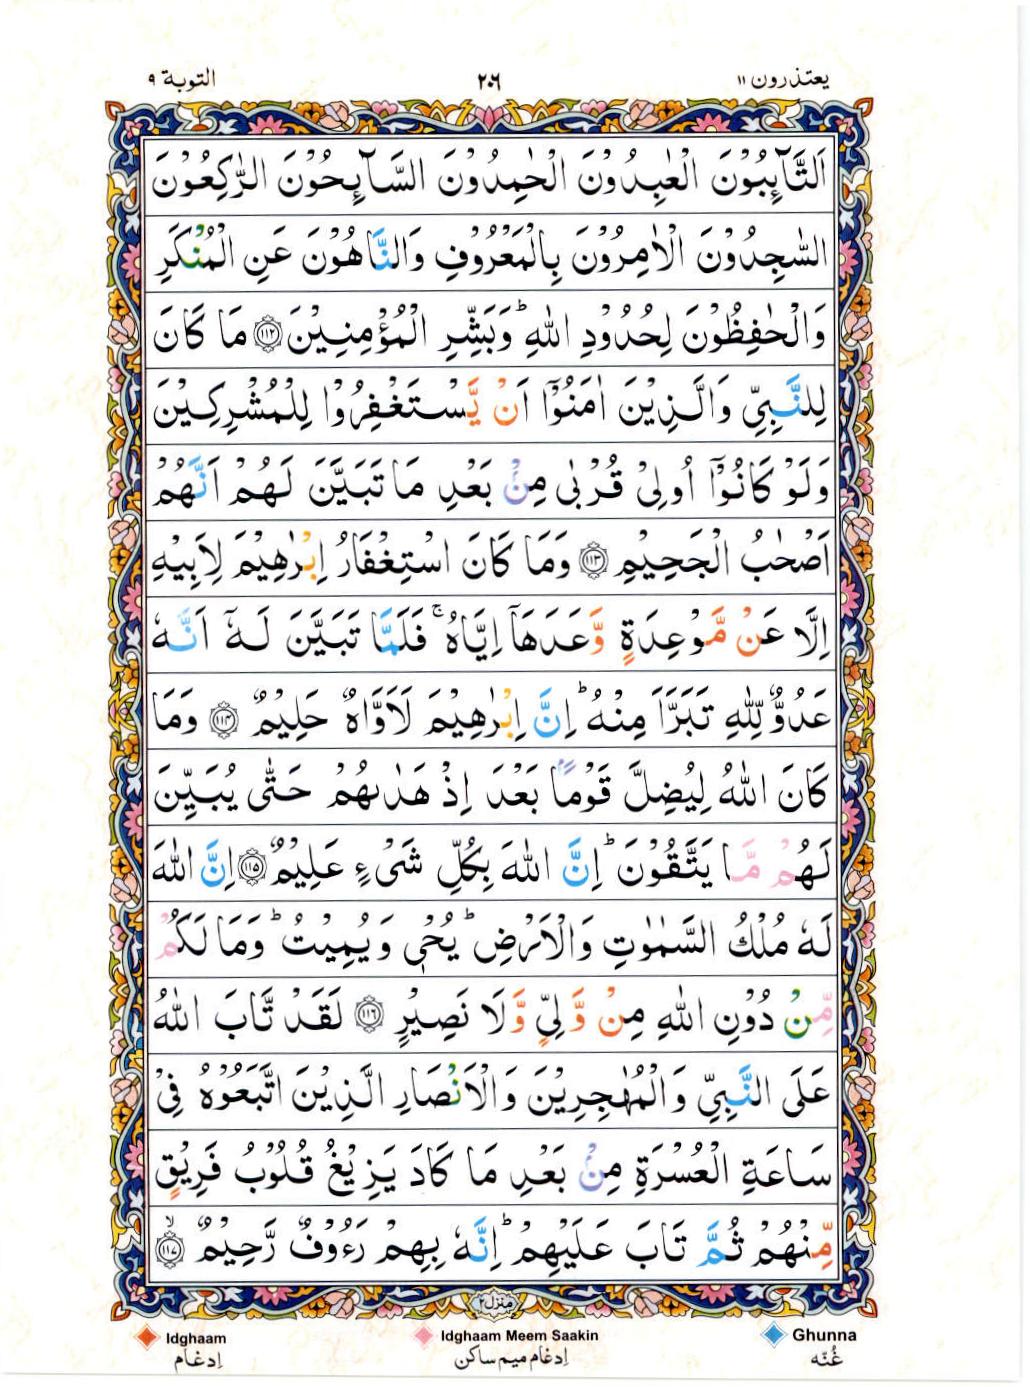 يعتذرون ١١ ٢٠٦ التوبة ٩
اَلتَّآئِبُوْنَ الْعٰبِدُوْنَ الْحٰمِدُوْنَ السَّآئِحُوْنَ الرّٰكِعُوْنَ
السّٰجِدُوْنَ الْاٰمِرُوْنَ بِالْمَعْرُوْفِ وَالنَّاهُوْنَ عَنِ الْمُنْكَرِ
وَالْحٰفِظُوْنَ لِحُدُوْدِ اللّٰهِ ؕ وَبَشِّرِ الْمُؤْمِنِيْنَ ﴿۱۱۲﴾ مَا كَانَ
لِلنَّبِيِّ وَالَّذِيْنَ اٰمَنُوْۤا اَنْ يَّسْتَغْفِرُوْا لِلْمُشْرِكِيْنَ
وَلَوْ كَانُوْۤا اُولِيْ قُرْبٰى مِنْۢ بَعْدِ مَا تَبَيَّنَ لَهُمْ اَنَّهُمْ
اَصْحٰبُ الْجَحِيْمِ ﴿۱۱۳﴾ وَمَا كَانَ اسْتِغْفَارُ اِبْرٰهِيْمَ لِاَبِيْهِ
اِلَّا عَنْ مَّوْعِدَةٍ وَّعَدَهَاۤ اِيَّاهُ ۚ فَلَمَّا تَبَيَّنَ لَهٗۤ اَنَّهٗ
عَدُوٌّ لِّلّٰهِ تَبَرَّاَ مِنْهُ ؕ اِنَّ اِبْرٰهِيْمَ لَاَوَّاهٌ حَلِيْمٌ ﴿۱۱۴﴾ وَمَا
كَانَ اللّٰهُ لِيُضِلَّ قَوْمًۢا بَعْدَ اِذْ هَدٰىهُمْ حَتّٰى يُبَيِّنَ
لَهُمْ مَّا يَتَّقُوْنَ ؕ اِنَّ اللّٰهَ بِكُلِّ شَيْءٍ عَلِيْمٌ ﴿۱۱۵﴾ اِنَّ اللّٰهَ
لَهٗ مُلْكُ السَّمٰوٰتِ وَالْاَرْضِ ؕ يُحْيٖ وَيُمِيْتُ ؕ وَمَا لَكُمْ
مِّنْ دُوْنِ اللّٰهِ مِنْ وَّلِيٍّ وَّلَا نَصِيْرٍ ﴿۱۱۶﴾ لَقَدْ تَّابَ اللّٰهُ
عَلَى النَّبِيِّ وَالْمُهٰجِرِيْنَ وَالْاَنْصَارِ الَّذِيْنَ اتَّبَعُوْهُ فِيْ
سَاعَةِ الْعُسْرَةِ مِنْۢ بَعْدِ مَا كَادَ يَزِيْغُ قُلُوْبُ فَرِيْقٍ
مِّنْهُمْ ثُمَّ تَابَ عَلَيْهِمْ ؕ اِنَّهٗ بِهِمْ رَءُوْفٌ رَّحِيْمٌ ۙ﴿۱۱۷﴾
منزل ٢
Idghaam Idghaam Meem Saakin Ghunna
اِدغام اِدغام ميم ساكن غُنّه